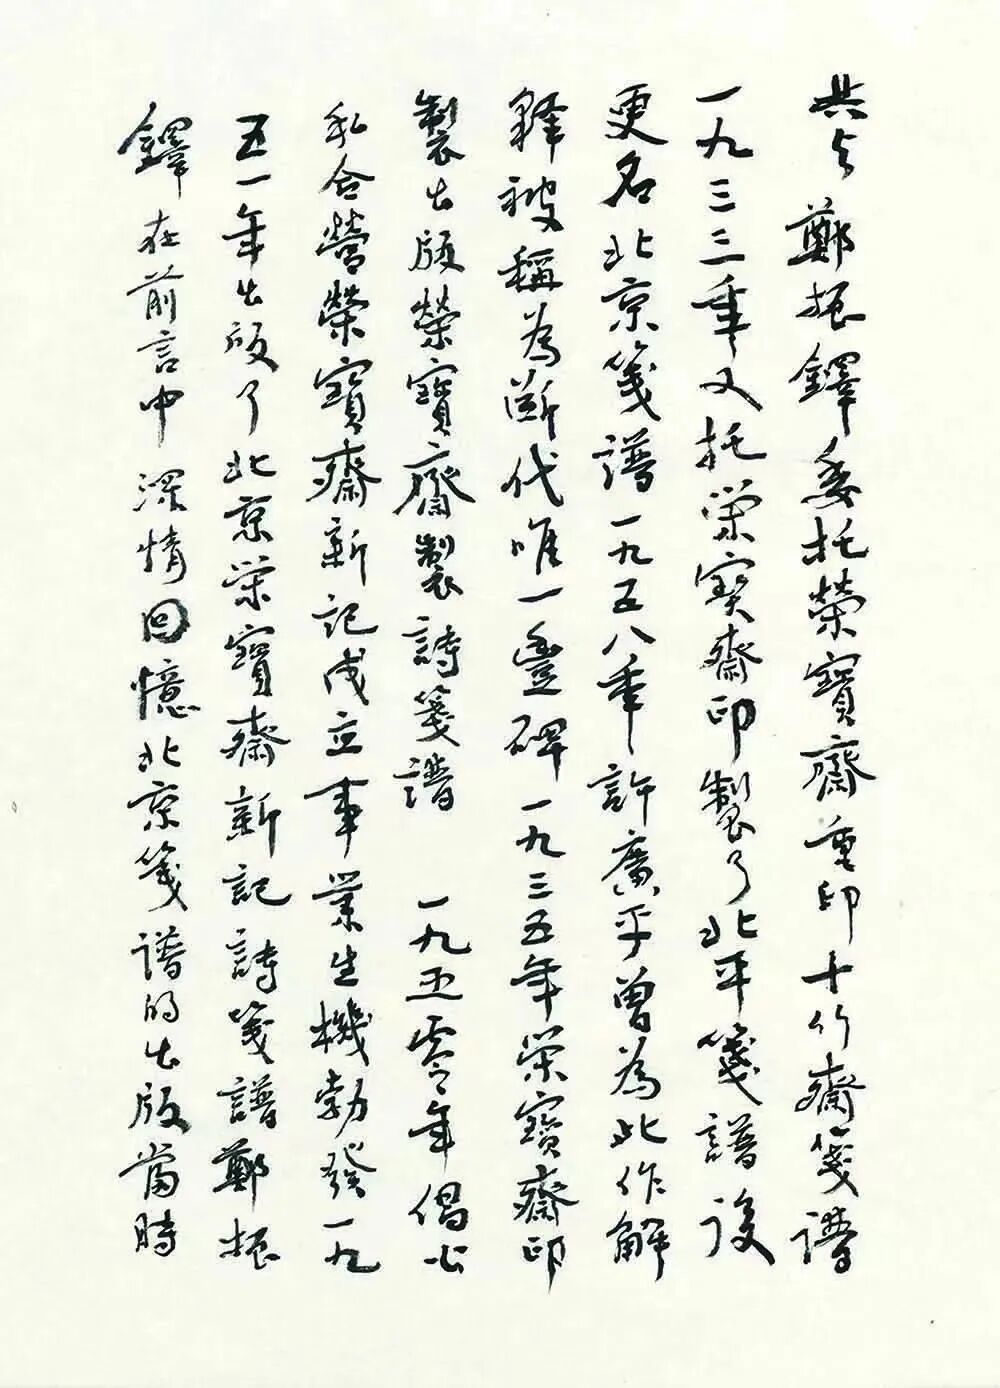 共与鄭振鐸委托榮寶齋重印十竹齋箋譜
一九三三年又托栄寶齋印製了北平箋譜後
更名北京箋譜一九五八年許廣平曾為此作解
釋被稱為斷代唯一豐碑一九三五年栄寶齋印
製出版榮寶齋製詩箋譜 一九五零年倡公
私合營榮寶齋新記成立事業生機勃發一九
五一年出版了北京栄寶齋新記詩箋譜鄭振
鐸在前言中深情回憶北京箋譜的出版當時